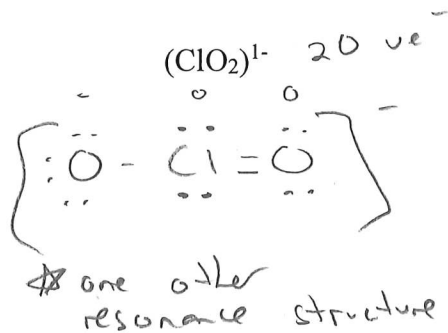 (ClO₂)¹⁻ 20 ve⁻
- 0 0
[:Ö - C̈l = Ö]⁻
☆ one other
resonance structure